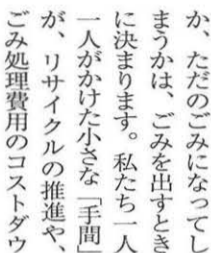 か、ただのごみになってし
まうかは、ごみを出すとき
に決まります。私たち一人
一人がかけた小さな「手間」
が、リサイクルの推進や、
ごみ処理費用のコストダウ